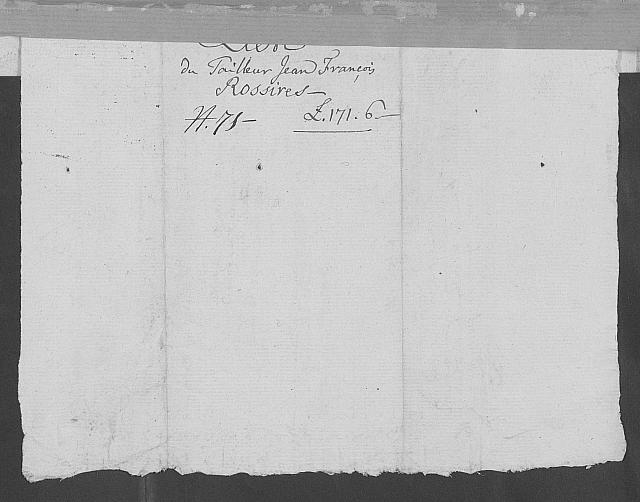 du Tailleur Jean François
Rossires
N. 71 £. 171. 6